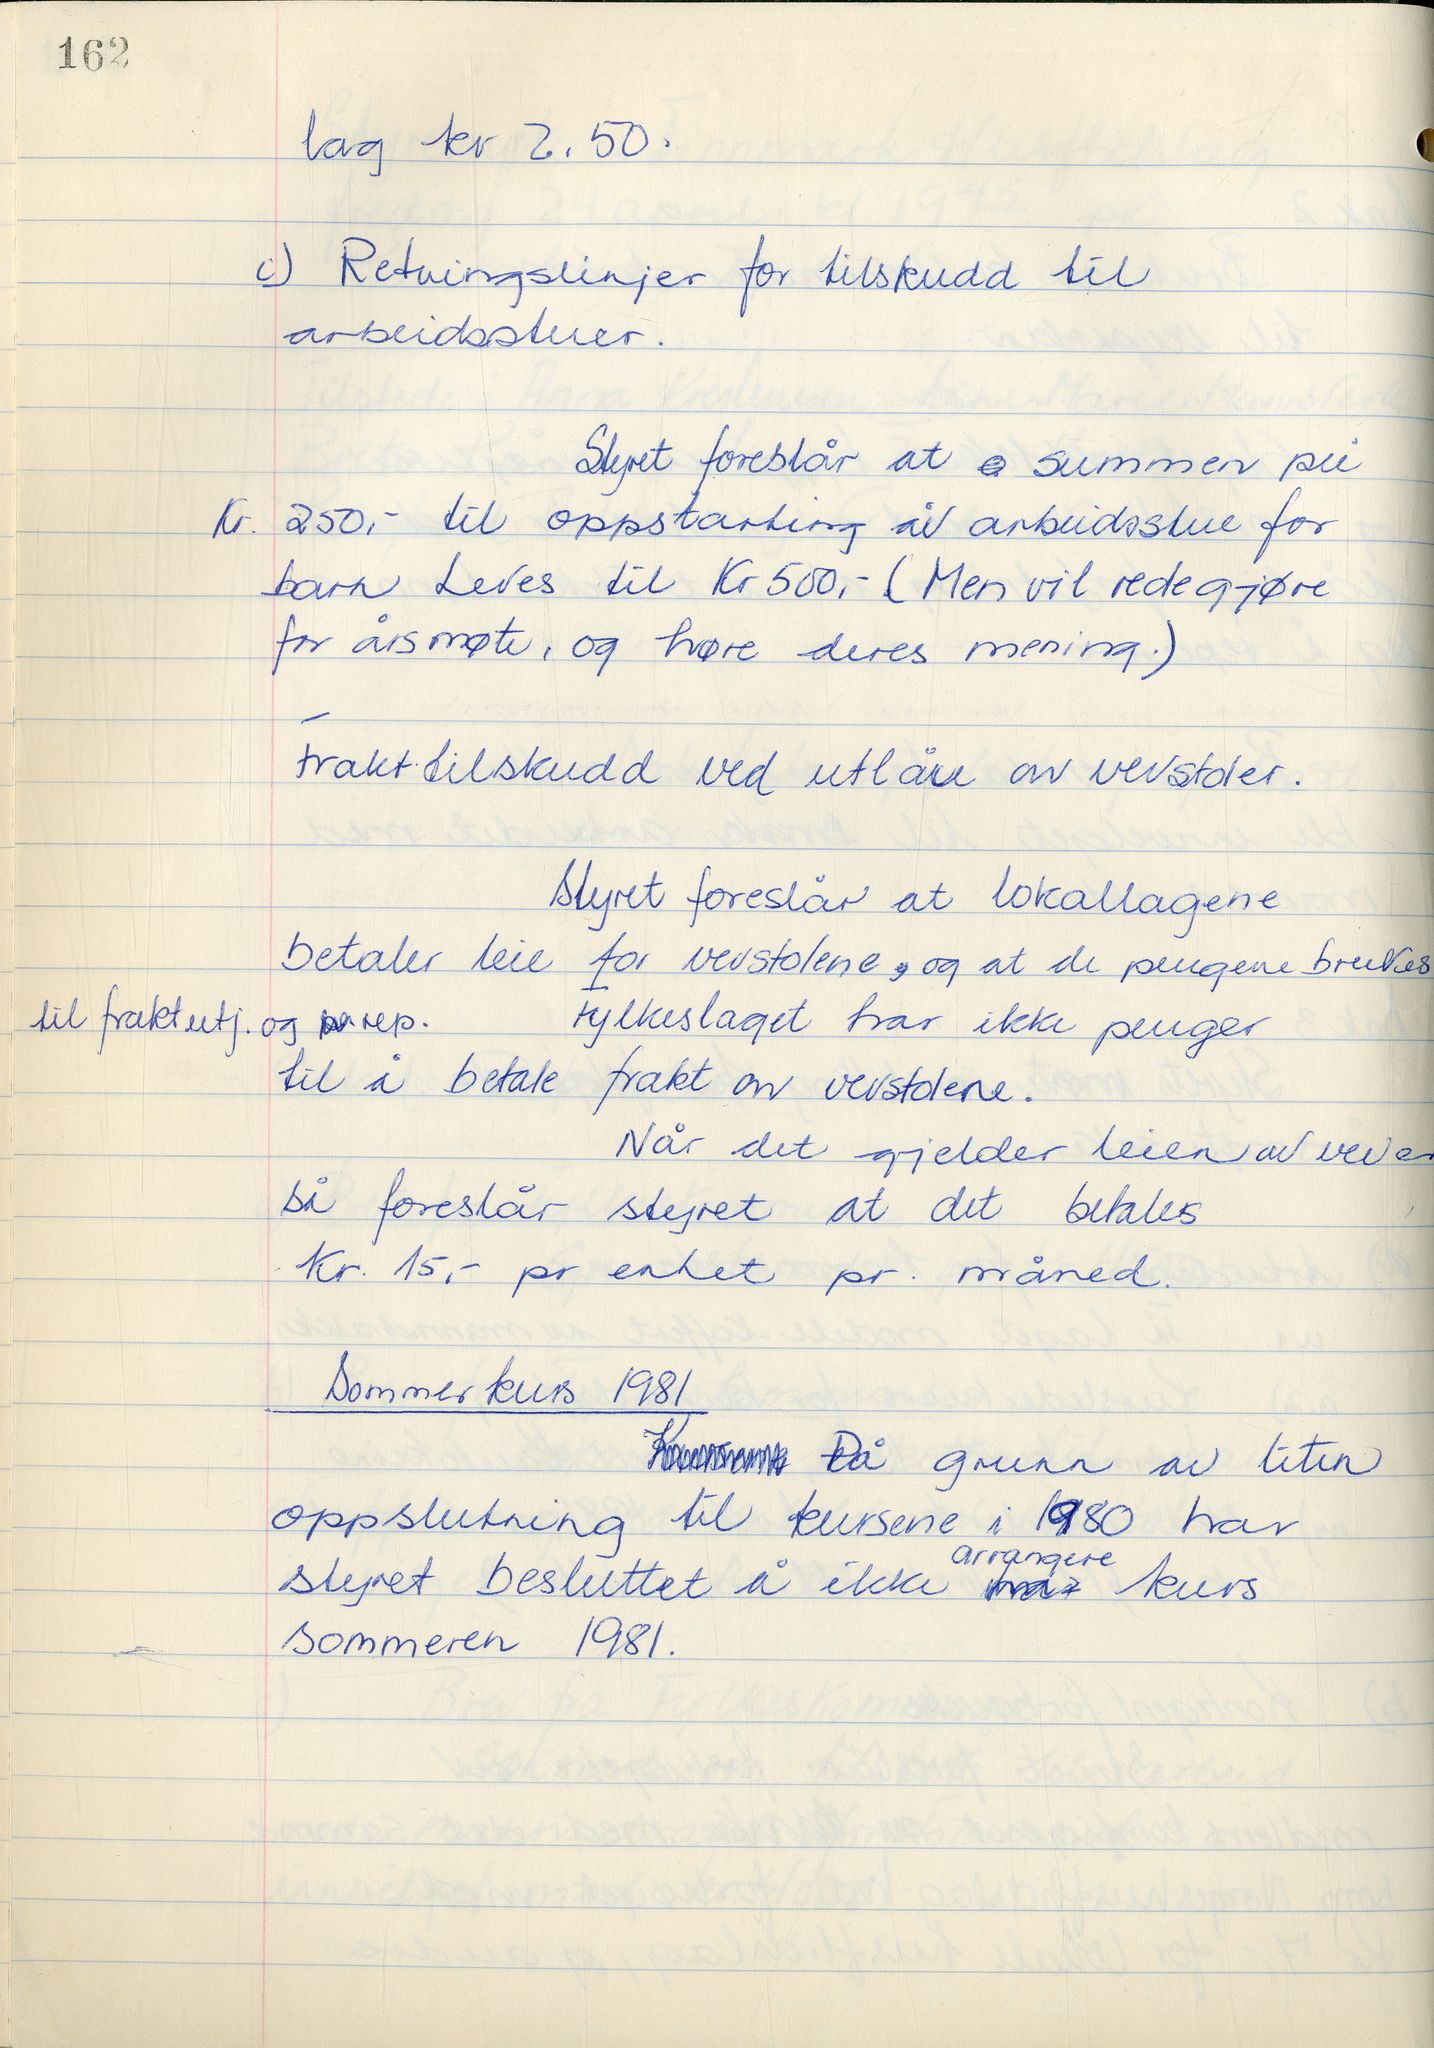 162
lag kr 2.50.
c) Retningslinjer for tilskudd til
arbeidsstuer.
Styret foreslår at summen på
Kr. 250,- til oppstarting av arbeidsstue for
barn heves til Kr 500,- (Men vil redegjøre
for årsmøte, og høre deres mening.)
Frakt tilskudd ved utlån av vevstoler.
Styret foreslår at lokallagene
betaler leie for vevstolene, og at de pengene brukes
til fraktutj. og rep. Fylkeslaget har ikke penger
til å betale frakt av vevstolene.
Når det gjelder leien av vever
så foreslår styret at det betales
Kr. 15,- pr enhet pr. måned.
Sommerkurs 1981
På grunn av liten
oppslutning til kursene i 1980 har
styret besluttet å ikke arrangere kurs
sommeren 1981.